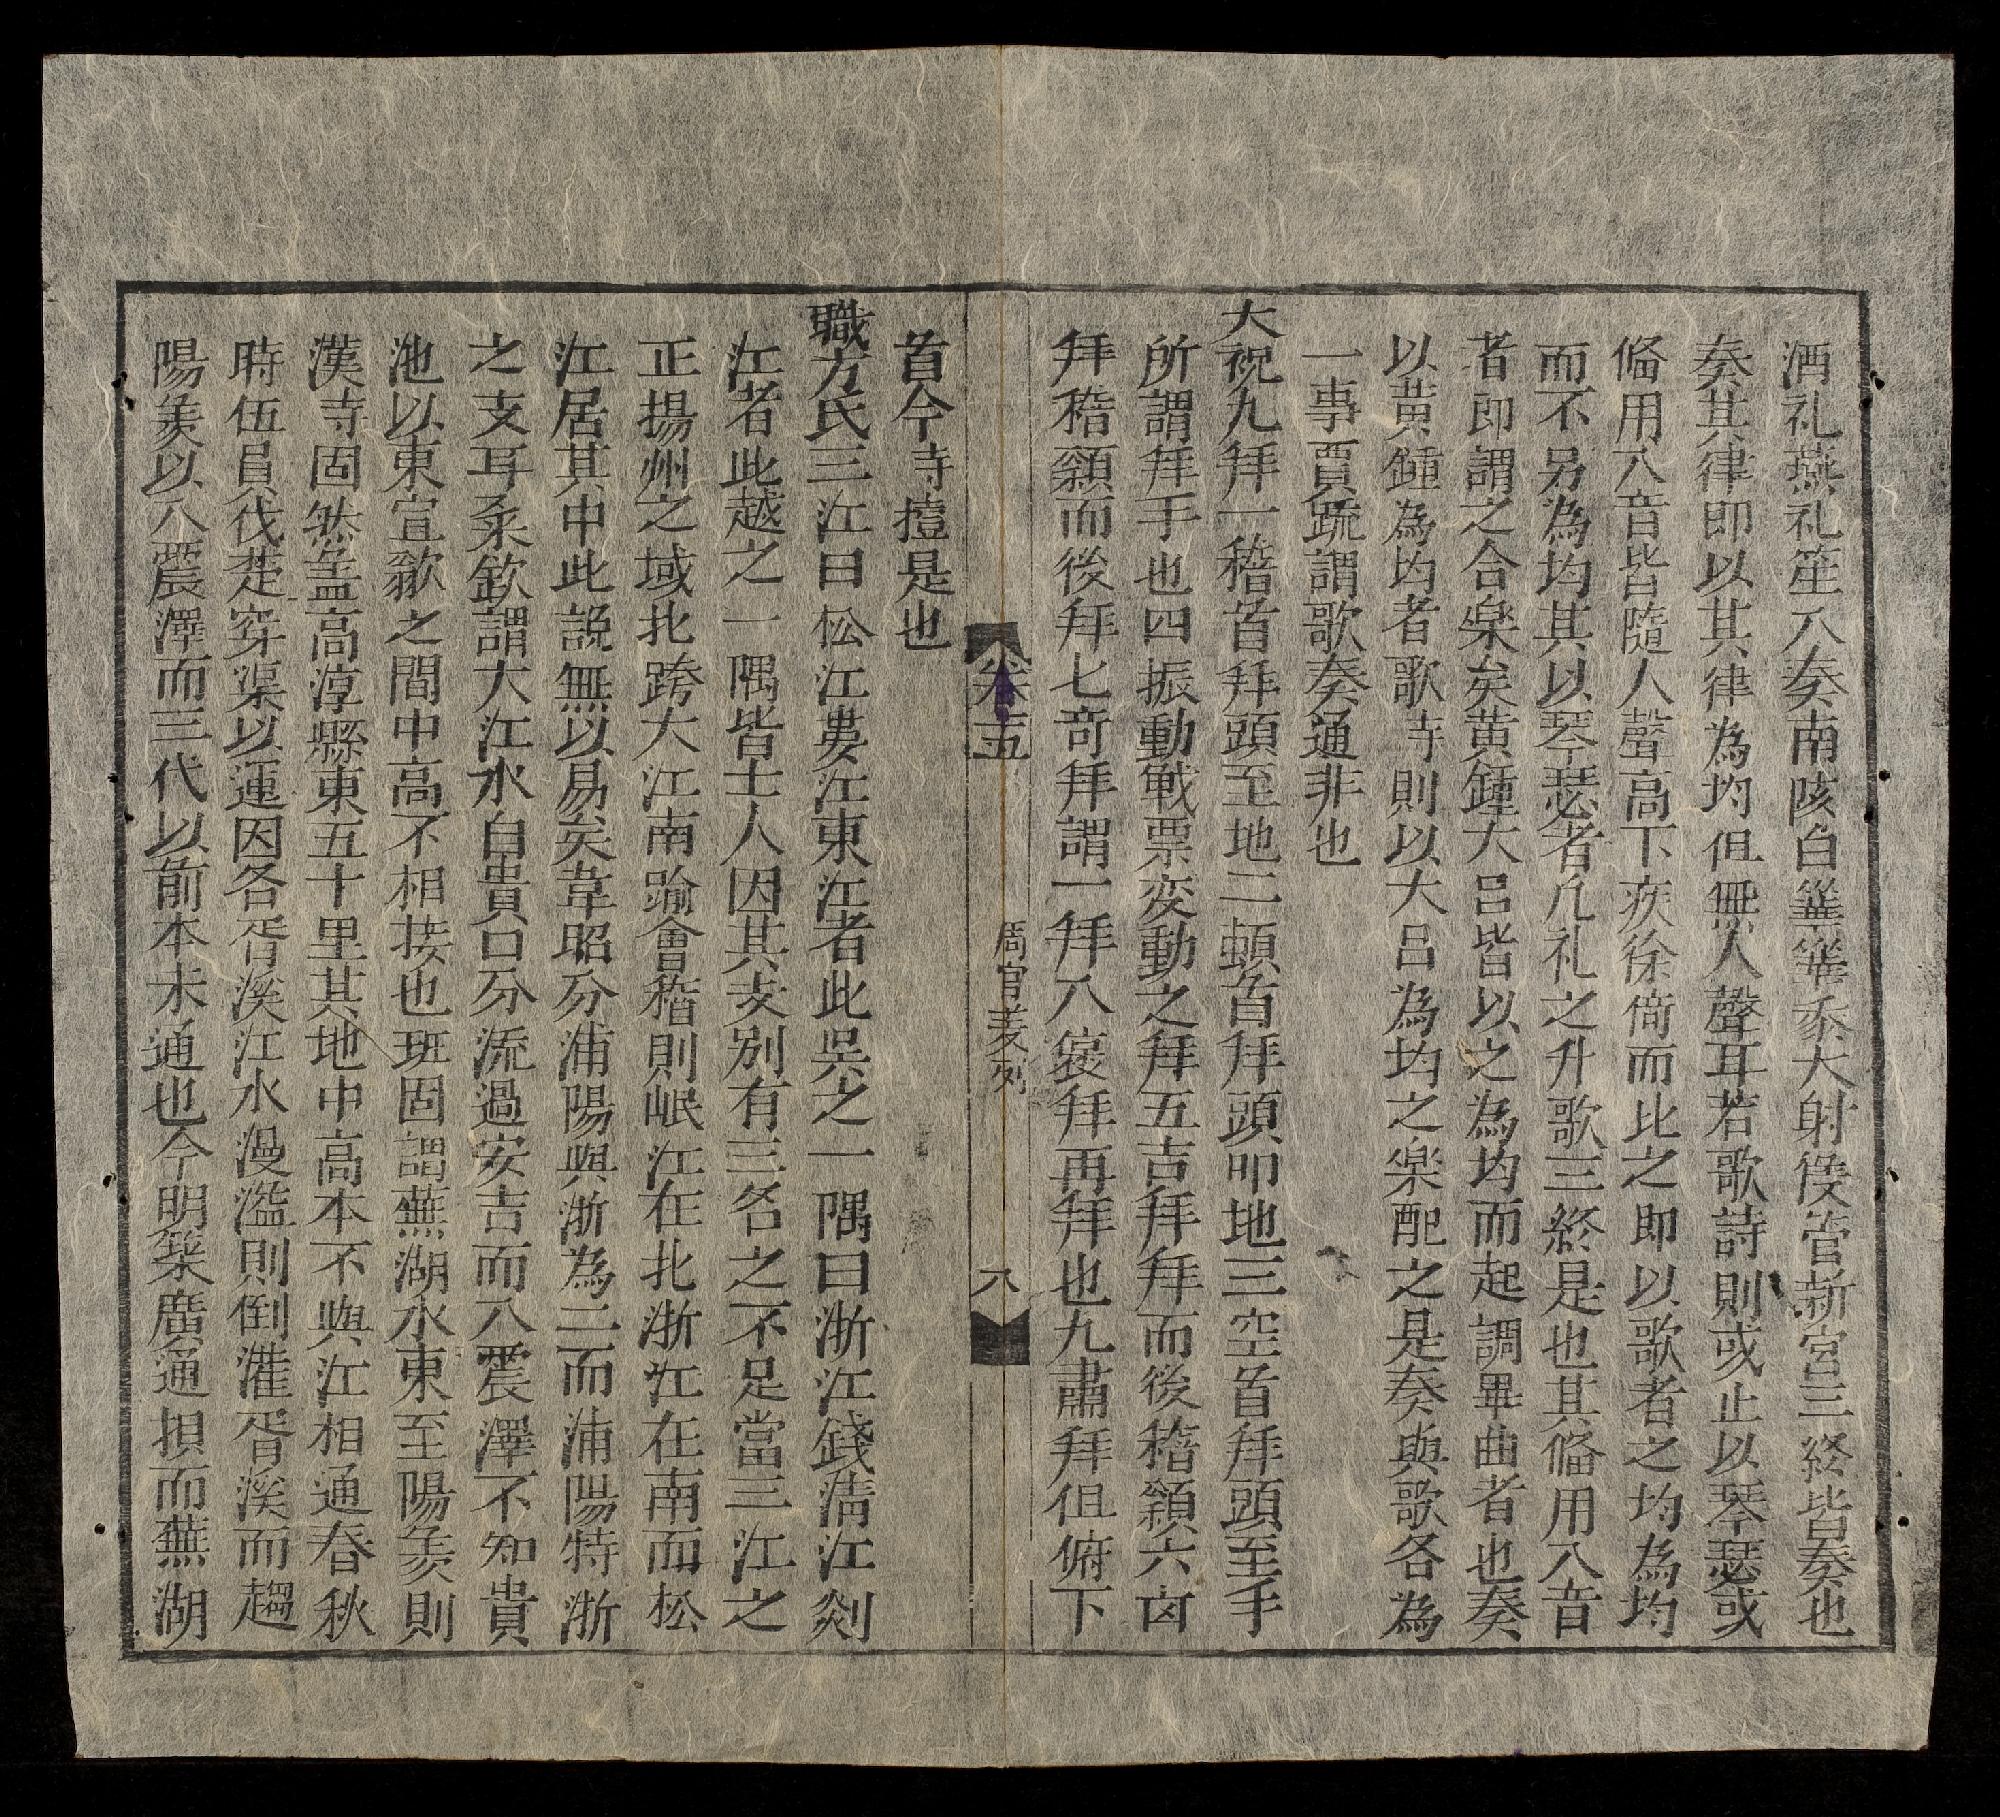 酒礼燕礼笙入奏南陔白華華黍大射後管新宮三終皆奏也
奏其律即以其律為均但無人聲耳若歌詩則或止以琴瑟或
俻用八音皆隨人聲高下疾徐倚而比之即以歌者之均為均
而不另為均其以琴瑟者凡礼之升歌三終是也其俻用八音
者即謂之合楽矣黄鍾大吕皆以之為均而起調畢曲者也奏
以黄鍾為均者歌時則以大吕為均之楽配之是奏與歌各為
一事賈疏謂歌奏通非也
大祝九拜一稽首拜頭至地二頓首拜頭叩地三空首拜頭至手
所謂拜手也四振動戰栗变動之拜五吉拜拜而後稽顙六㐫
拜稽顙而後拜七奇拜謂一拜八褒拜再拜也九肅拜但俯下
卷十五 周官 八
首今寺撎是也
職方氏三江曰松江婁江東江者此吳之一隅曰浙江錢清江剡
江者此越之一隅皆土人因其支别有三名之不足當三江之
正揚州之域北跨大江南踰會稽則岷江在北浙江在南而松
江居其中此説無以易矣韋昭分浦陽與浙為二而浦陽特浙
之支耳桑欽謂大江水自貴口分流過安吉而入震澤不知貴
池以東宣歙之間中高不相接也班固謂蕪湖水東至陽羨則
漢寺固然盖高淳縣東五十里其地中高本不與江相通春秋
時伍員伐楚穿渠以運因名胥溪江水漫溢則倒灌胥溪而趨
陽羨以入震澤而三代以前本未通也今明築廣通壩而蕪湖